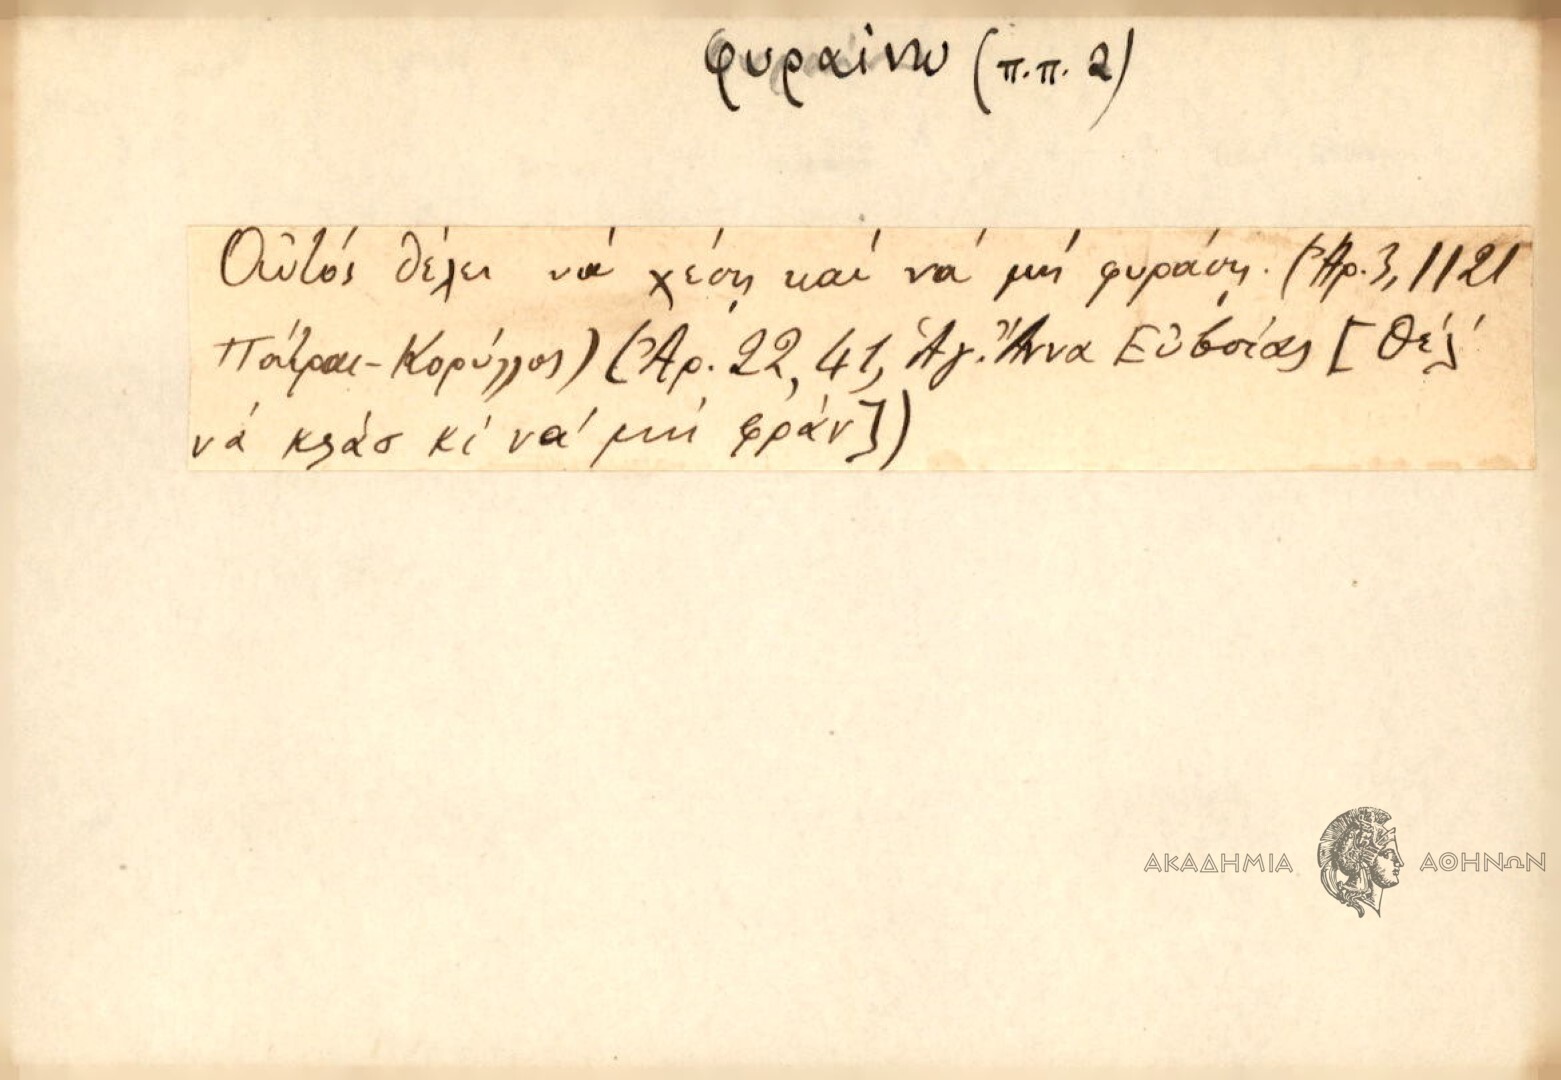 φυραίνω (π.π. 2)
Αὐτός θέλει νά χέση καί νά μή φυράση. (Ἀρ. 3, 1121
Πάτραι-Κορύλλος) (Ἀρ. 22, 41, Ἁγ. Ἄννα Εὐβοίας [Θέλ'
νά κλάσ κί νά μή φράν])
ΑΚΑΔΗΜΙΑ ΑΘΗΝΩΝ